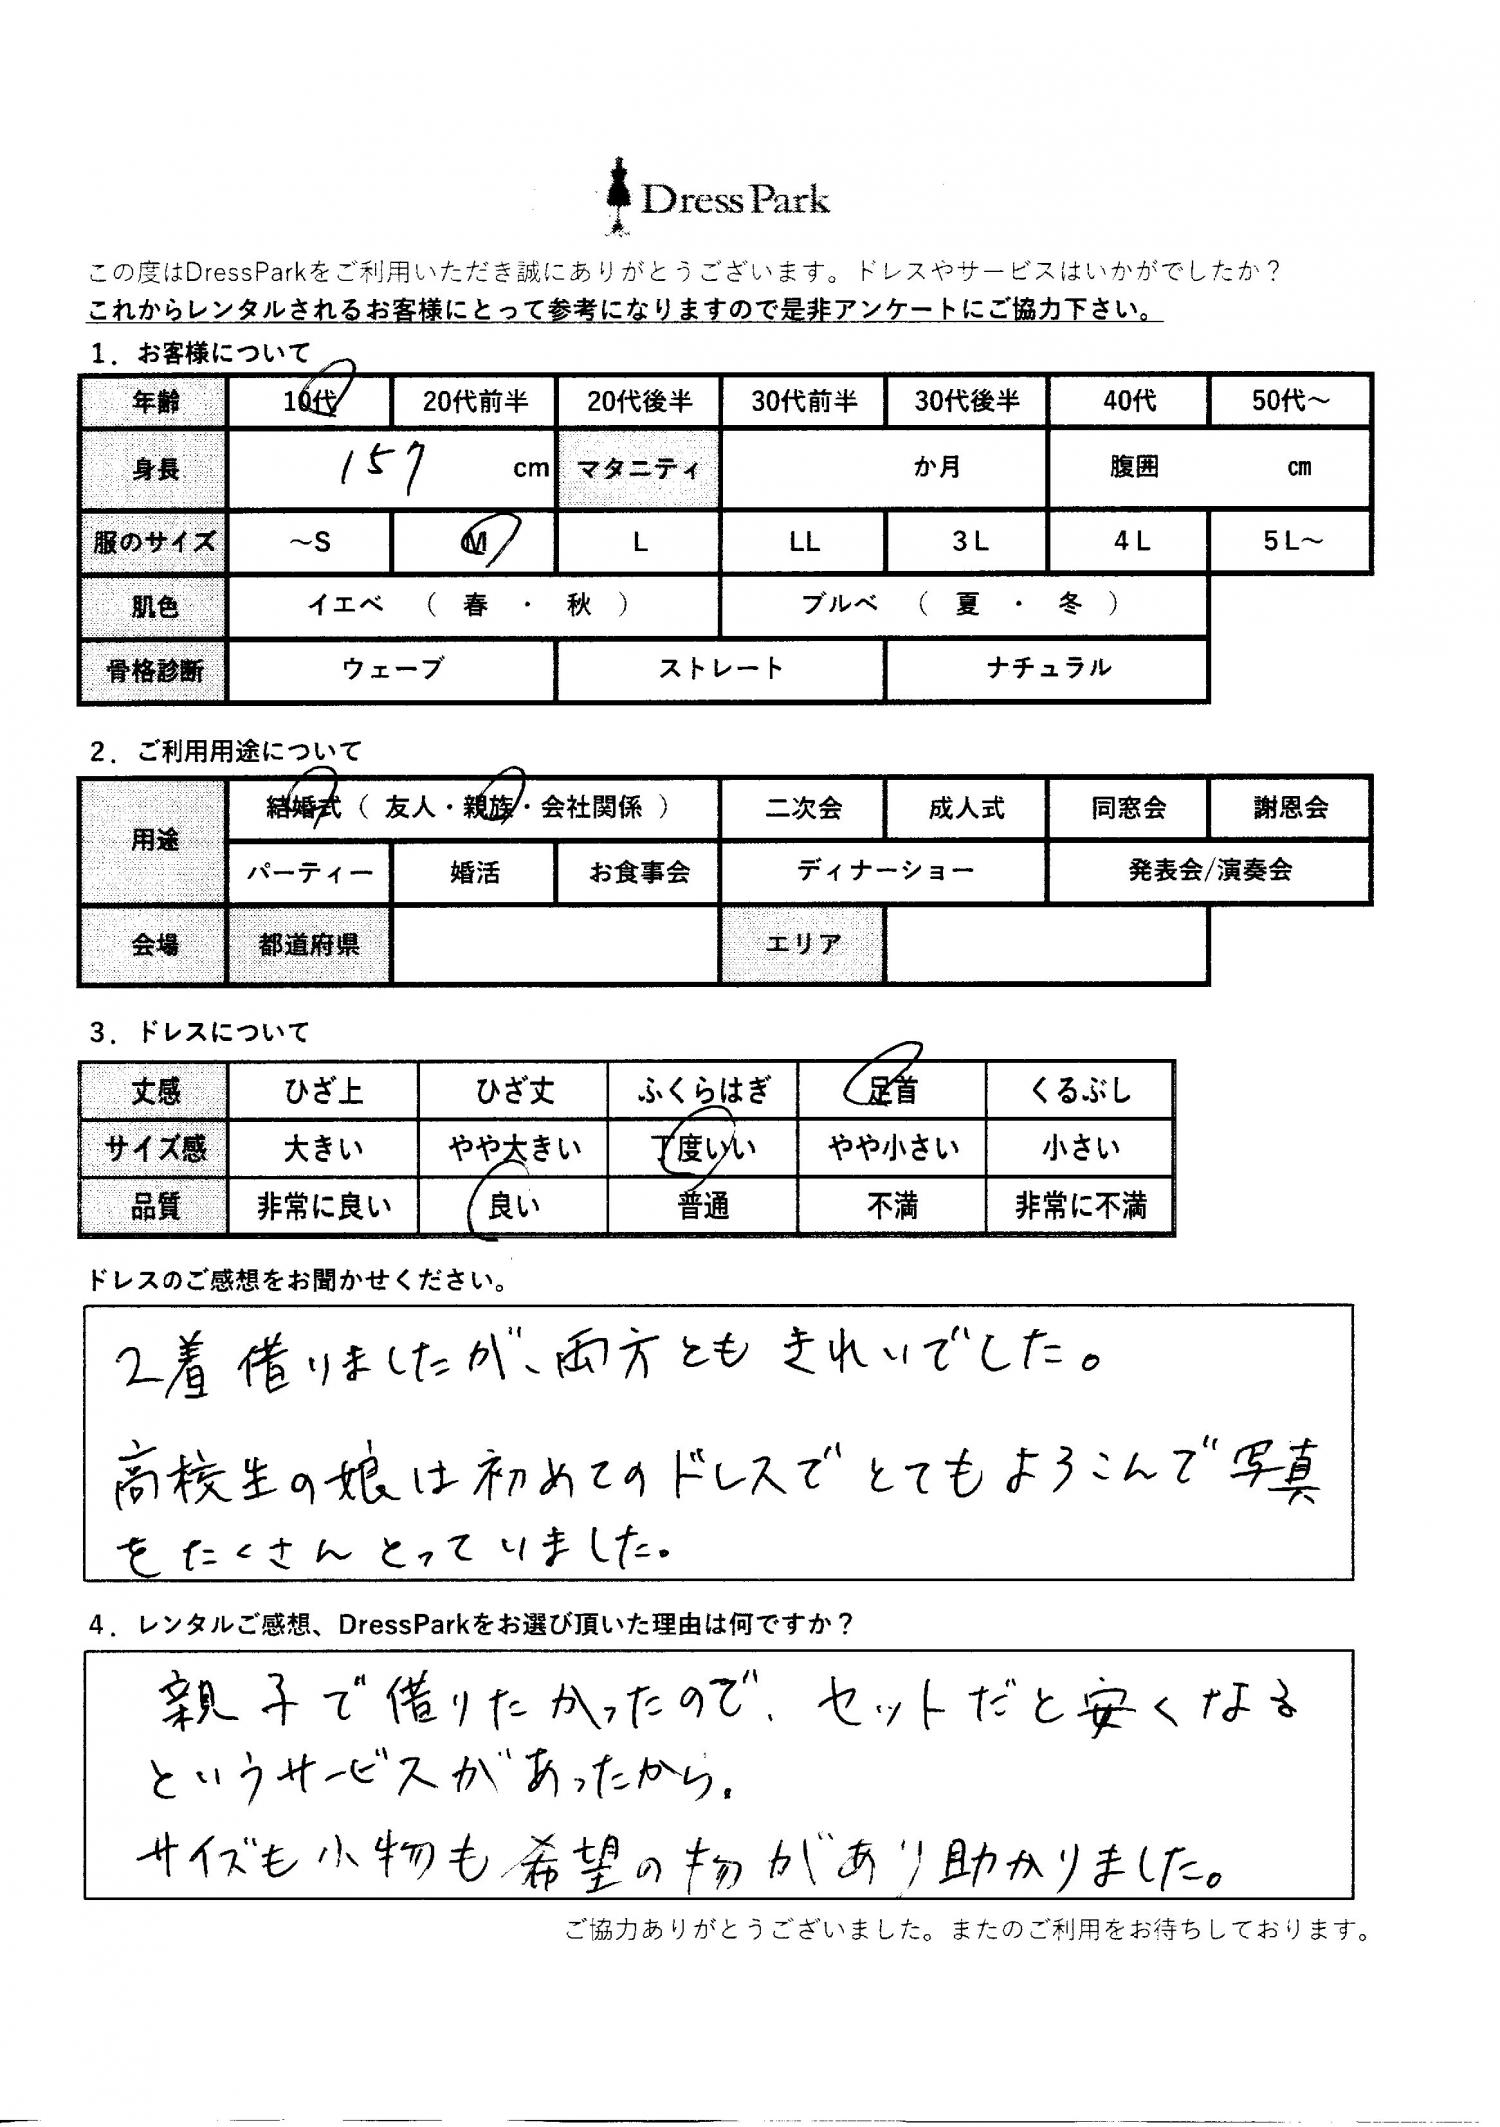 DressPark
この度はDressParkをご利用いただき誠にありがとうございます。ドレスやサービスはいかがでしたか？
これからレンタルされるお客様にとって参考になりますので是非アンケートにご協力下さい。
1．お客様について
年齢 10代 20代前半 20代後半 30代前半 30代後半 40代 50代～
身長 157 cm マタニティ か月 腹囲 cm
服のサイズ ～S M L LL 3L 4L 5L～
肌色 イエベ （ 春 ・ 秋 ） ブルベ （ 夏 ・ 冬 ）
骨格診断 ウェーブ ストレート ナチュラル
2．ご利用用途について
用途 結婚式（ 友人・親族・会社関係 ） 二次会 成人式 同窓会 謝恩会
パーティー 婚活 お食事会 ディナーショー 発表会/演奏会
会場 都道府県 エリア
3．ドレスについて
丈感 ひざ上 ひざ丈 ふくらはぎ 足首 くるぶし
サイズ感 大きい やや大きい 丁度いい やや小さい 小さい
品質 非常に良い 良い 普通 不満 非常に不満
ドレスのご感想をお聞かせください。
2着借りましたが、両方ともきれいでした。
高校生の娘は初めてのドレスでとてもよろこんで写真
をたくさんとっていました。
4．レンタルご感想、DressParkをお選び頂いた理由は何ですか？
親子で借りたかったので、セットだと安くなる
というサービスがあったから。
サイズも小物も希望の物があり助かりました。
ご協力ありがとうございました。またのご利用をお待ちしております。